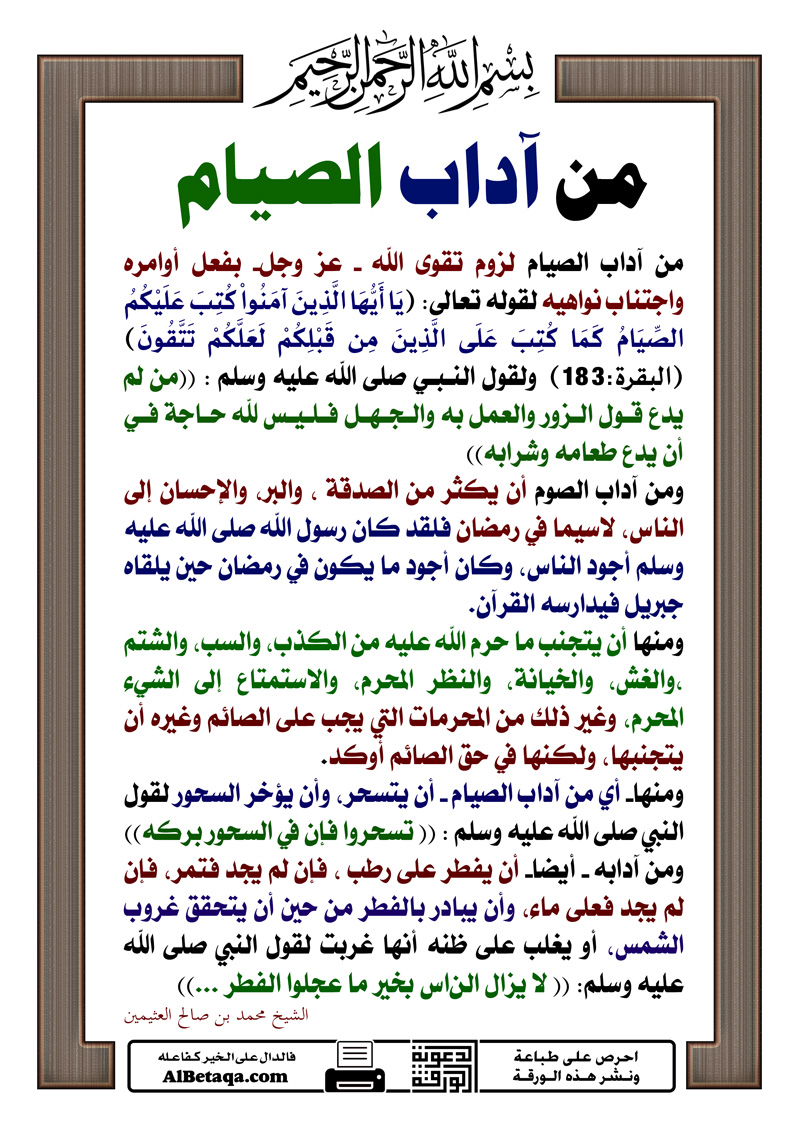 بِسْمِ اللَّهِ الرَّحْمَنِ الرَّحِيمِ
من آداب الصيام
من آداب الصيام لزوم تقوى الله ـ عز وجل ـ بفعل أوامره
واجتناب نواهيه لقوله تعالى: (يَا أَيُّهَا الَّذِينَ آمَنُواْ كُتِبَ عَلَيْكُمُ
الصِّيَامُ كَمَا كُتِبَ عَلَى الَّذِينَ مِن قَبْلِكُمْ لَعَلَّكُمْ تَتَّقُونَ)
(البقرة:183) ولقول النبي صلى الله عليه وسلم : ((من لم
يدع قول الزور والعمل به والجهل فليس لله حاجة في
أن يدع طعامه وشرابه))
ومن آداب الصوم أن يكثر من الصدقة ، والبر، والإحسان إلى
الناس، لاسيما في رمضان فلقد كان رسول الله صلى الله عليه
وسلم أجود الناس، وكان أجود ما يكون في رمضان حين يلقاه
جبريل فيدارسه القرآن.
ومنها أن يتجنب ما حرم الله عليه من الكذب، والسب، والشتم
،والغش، والخيانة، والنظر المحرم، والاستمتاع إلى الشيء
المحرم، وغير ذلك من المحرمات التي يجب على الصائم وغيره أن
يتجنبها، ولكنها في حق الصائم أوكد.
ومنهاـ أي من آداب الصيام ـ أن يتسحر، وأن يؤخر السحور لقول
النبي صلى الله عليه وسلم : (( تسحروا فإن في السحور بركه))
ومن آدابه ـ أيضاـ أن يفطر على رطب ، فإن لم يجد فتمر، فإن
لم يجد فعلى ماء، وأن يبادر بالفطر من حين أن يتحقق غروب
الشمس، أو يغلب على ظنه أنها غربت لقول النبي صلى الله
عليه وسلم: (( لا يزال الناس بخير ما عجلوا الفطر ...))
الشيخ محمد بن صالح العثيمين
احرص على طباعة
ونشر هذه الورقة
الورقة الدعوية
فالدال على الخير كفاعله
AlBetaqa.com